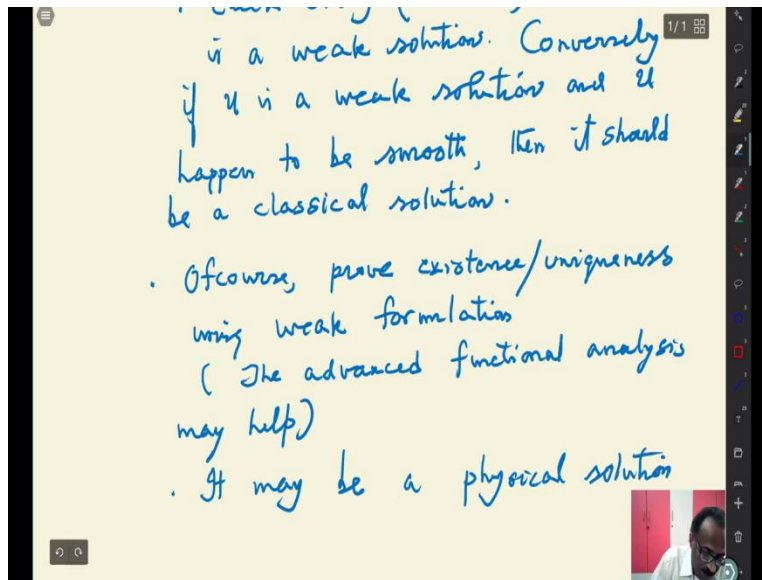 is a weak solution. Conversely
if u is a weak solution and u
happen to be smooth, then it should
be a classical solution.
. Ofcourse, prove existence/uniqueness
using weak formulation
( The advanced functional analysis
may help)
. It may be a physical solution
1/1